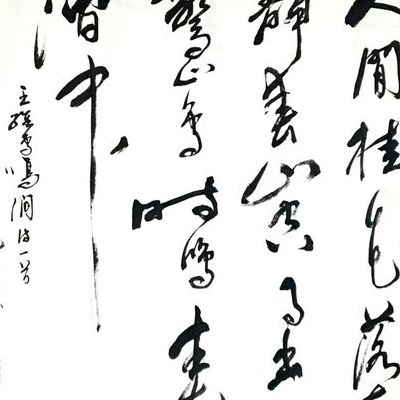 人閒桂花落
靜春山空月出
驚山鳥時鳴春
澗中
王維鳥鳴澗诗一首